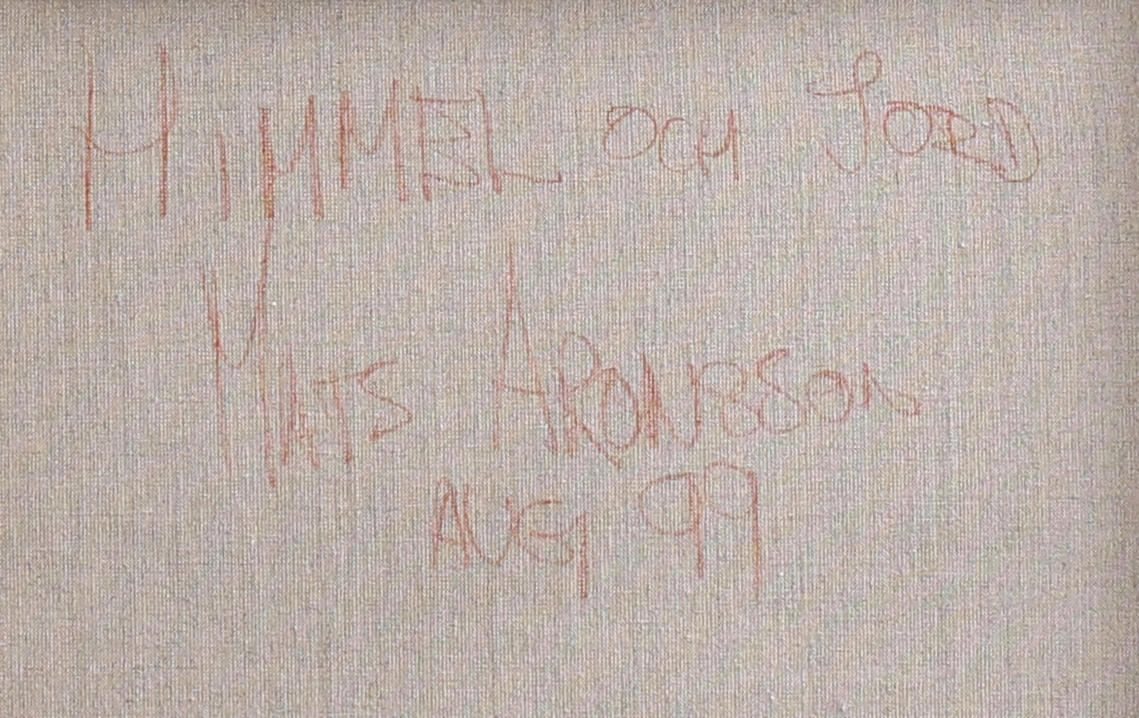 HIMMEL OCH JORD
MATS ARONSSON
AUG 99